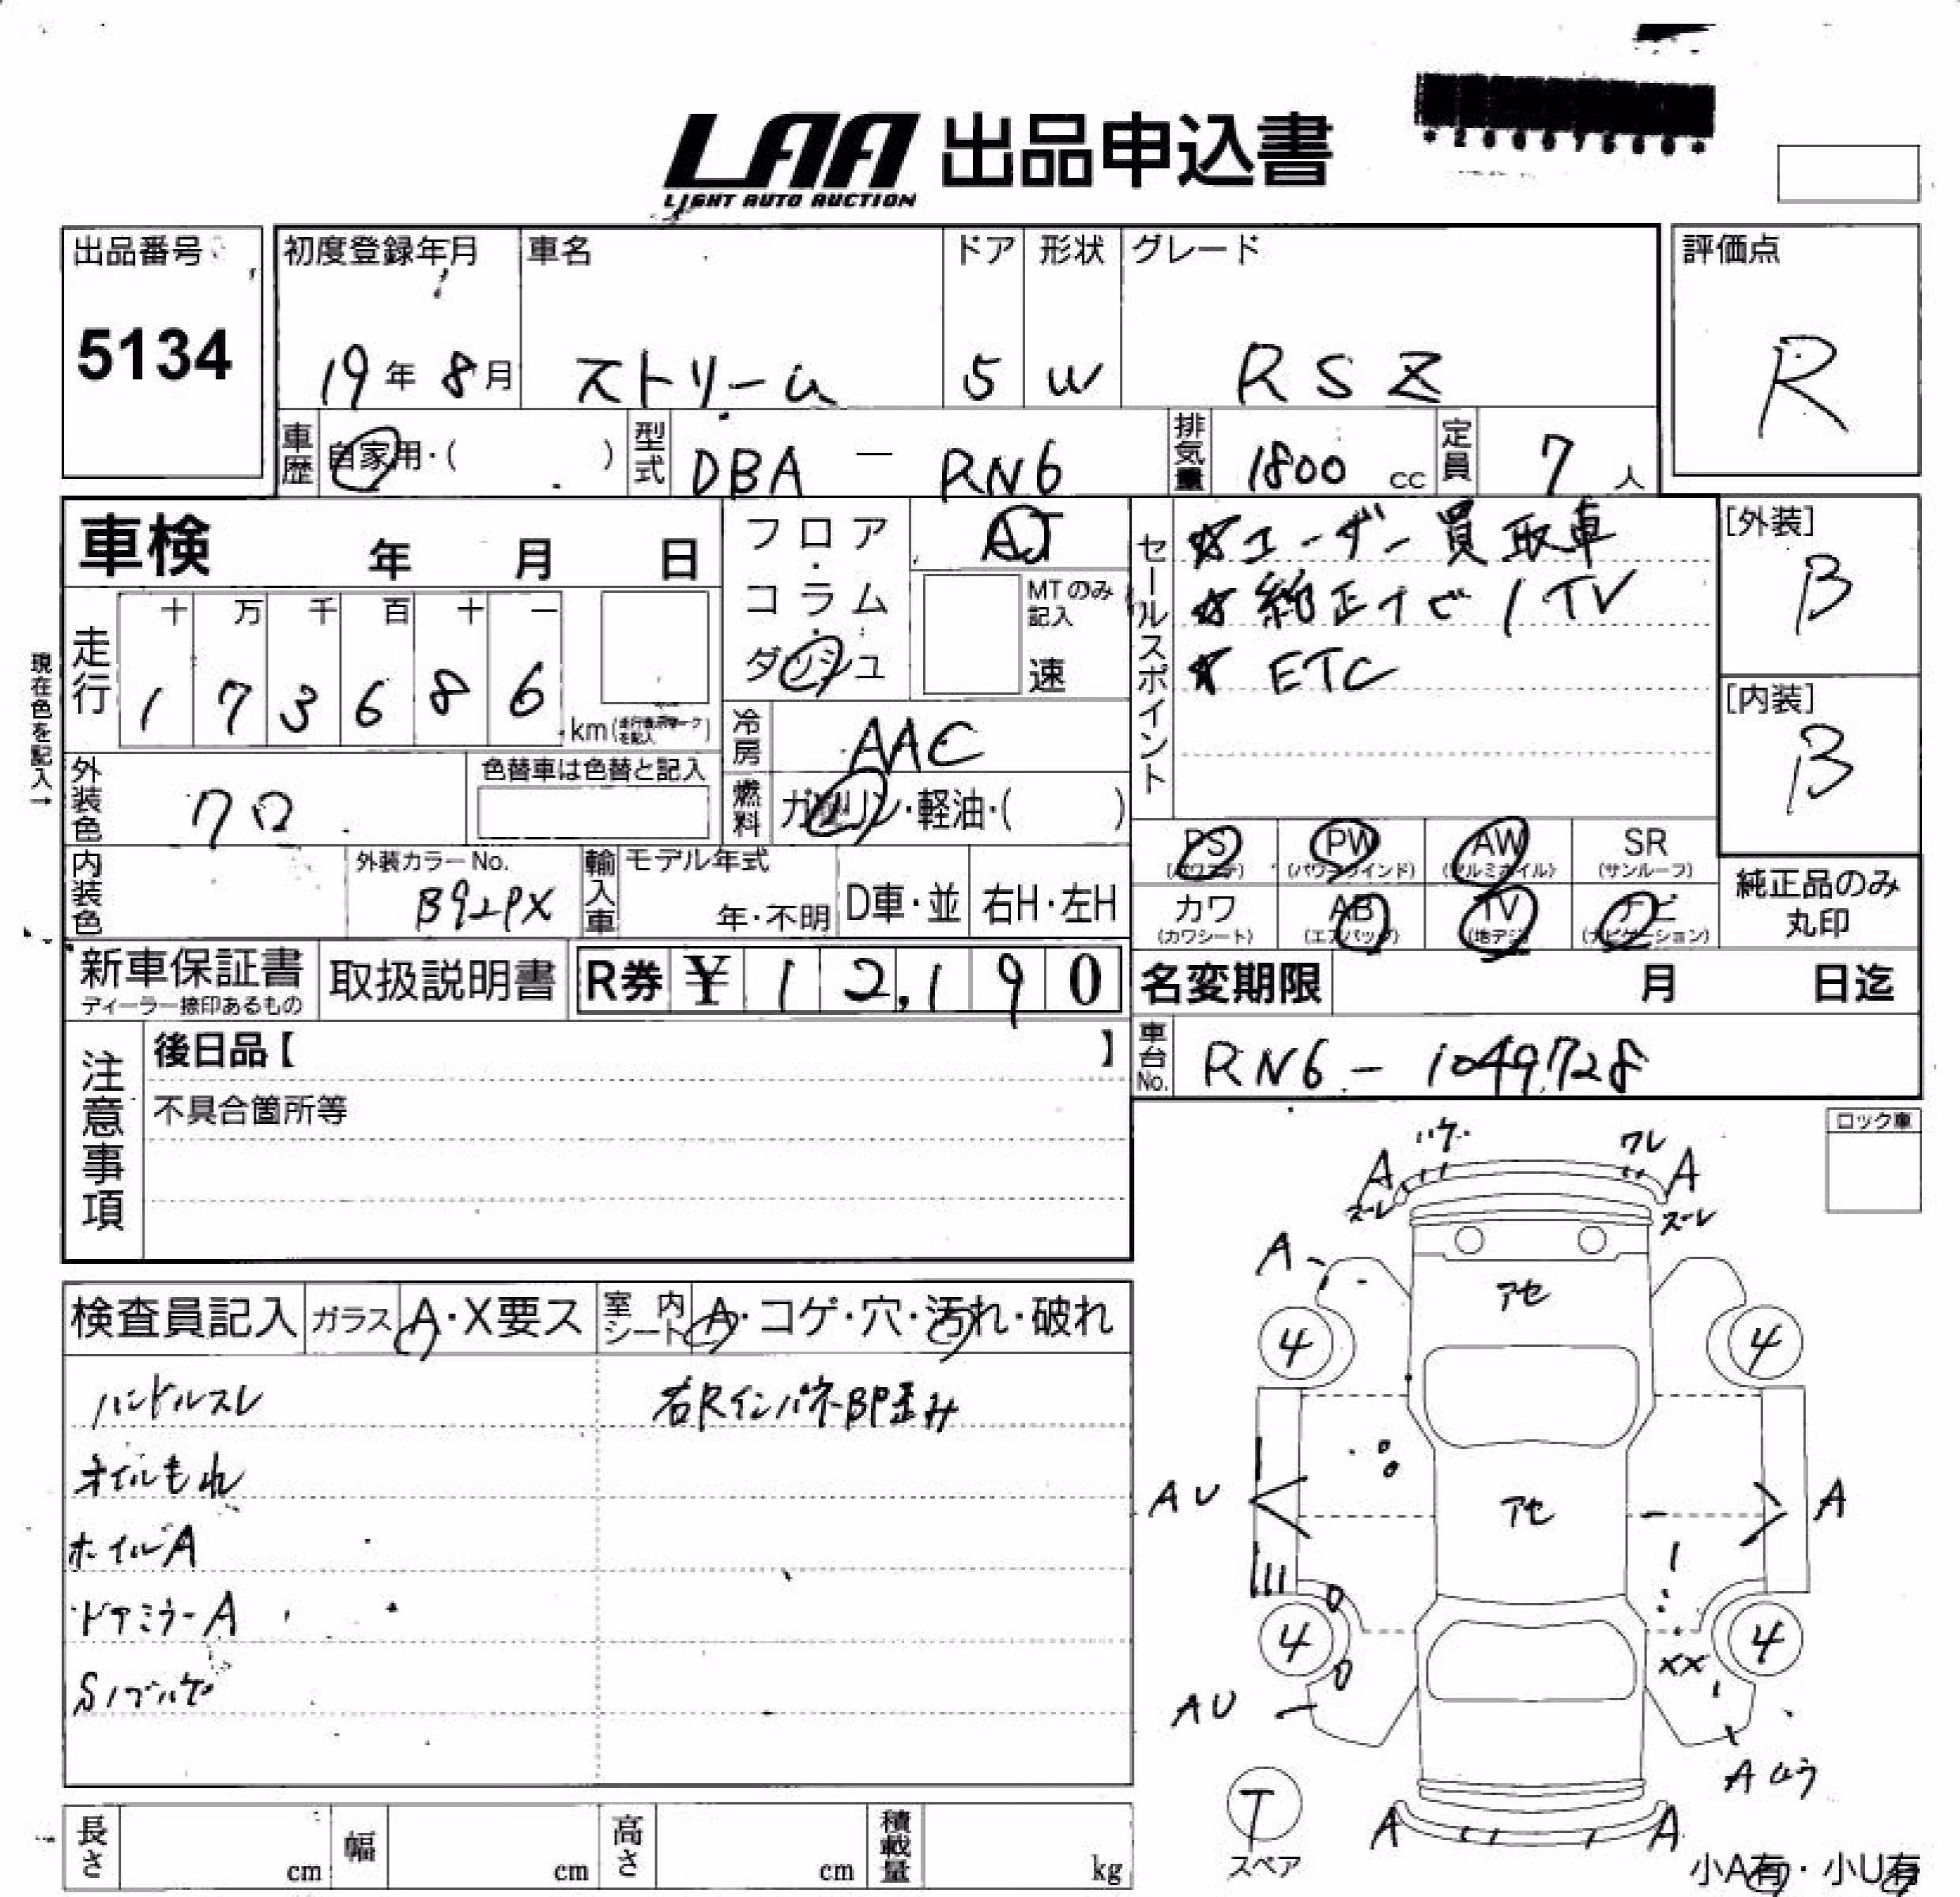 LAA 出品申込書
LIGHT AUTO AUCTION
出品番号
5134
初度登録年月
19年 8月
車名
ストリーム
ドア
5
形状
W
グレード
RSZ
評価点
R
車歴
自家用・( )
型式
DBA - RN6
排気量
1800 cc
定員
7 人
車検 年 月 日
フロア・コラム・ダッシュ
AT
MTのみ記入
速
セールスポイント
☆ユーザー買取車
☆純正ナビ/TV
☆ETC
[外装]
B
[内装]
B
現在色を記入→
走行
十 万 千 百 十 一
1 7 3 6 8 6
km
冷房
AAC
燃料
ガソリン・軽油・( )
外装色
クロ
色替車は色替と記入
内装色
外装カラーNo.
B92PX
輸入車
モデル年式
年・不明
D車・並
右H・左H
PS
(パワステ)
PW
(パワーウインド)
AW
(アルミホイル)
SR
(サンルーフ)
カワ
(カワシート)
AB
(エアバッグ)
TV
(地デジ)
ナビ
(ナビゲーション)
純正品のみ
丸印
新車保証書
ディーラー捺印あるもの
取扱説明書
R券 ¥ 12,190
名変期限 月 日迄
車台No.
RN6 - 1049728
注意事項
後日品【 】
不具合箇所等
ロック車
ハゲ
ワレ
A
A
スーレ
スーレ
A
アセ
4
4
AU
アセ
A
4
4
XX
AU
Aムラ
T
スペア
A
A
小A有・小U有
検査員記入
ガラス
A・X要ス
室内シート
A・コゲ・穴・汚れ・破れ
ハンドルスレ
右RインパネBP歪み
オイルもれ
ホイルA
ドアミラーA
Sノブハゲ
長さ cm
幅 cm
高さ cm
積載量 kg